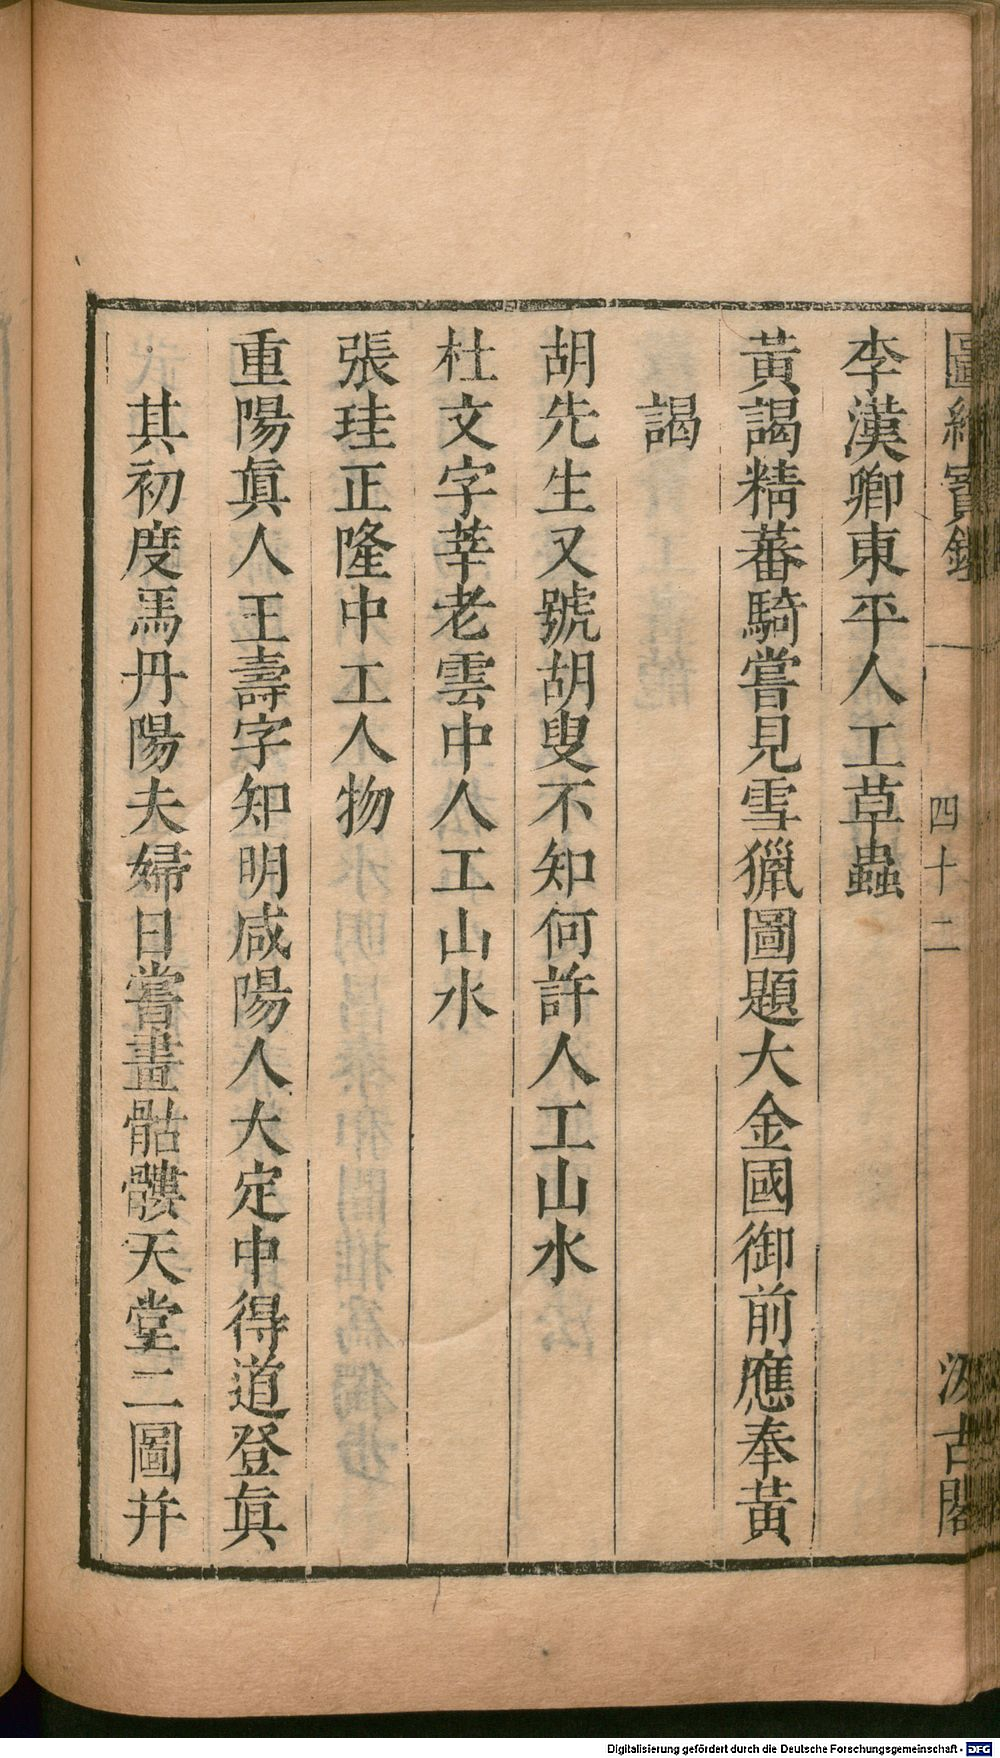 圖繪寶鑑
四十二
汲古閣
李漢卿東平人工草蟲
黃謁精蕃騎嘗見雪獵圖題大金國御前應奉黃
謁
胡先生又號胡叟不知何許人工山水
杜文字莘老雲中人工山水
張珪正隆中工人物
重陽眞人王壽字知明咸陽人大定中得道登眞
其初度馬丹陽夫婦日嘗畫骷髏天堂二圖并
Digitalisierung gefördert durch die Deutsche Forschungsgemeinschaft - DFG